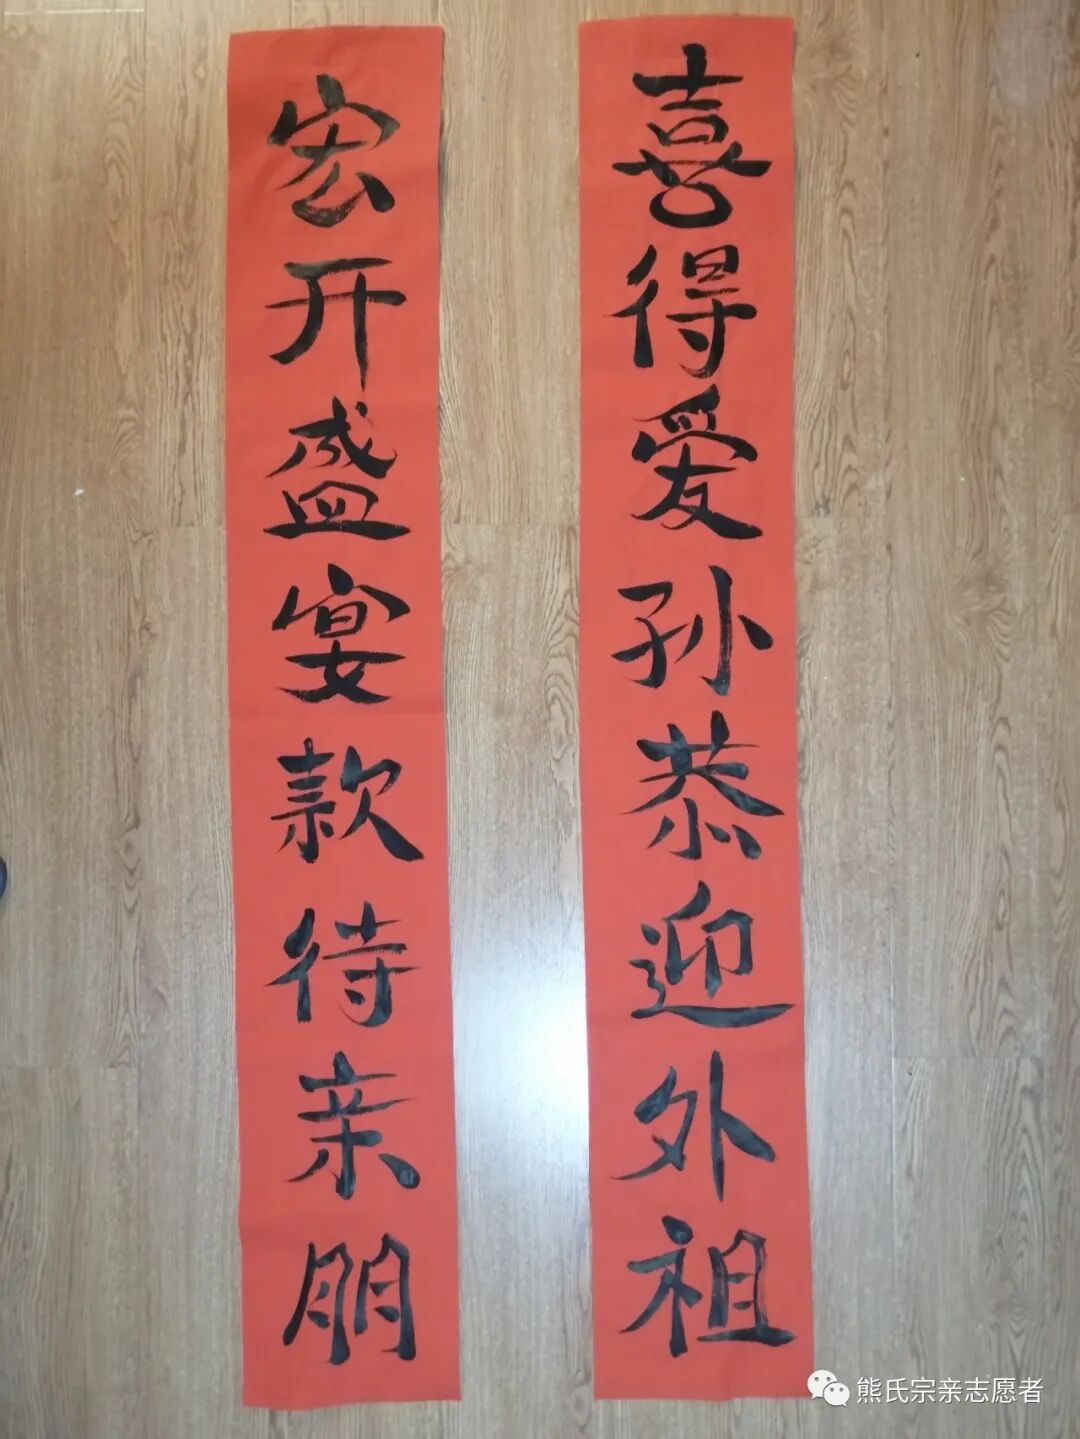 喜得爱孙恭迎外祖
宏开盛宴款待亲朋
熊氏宗亲志愿者